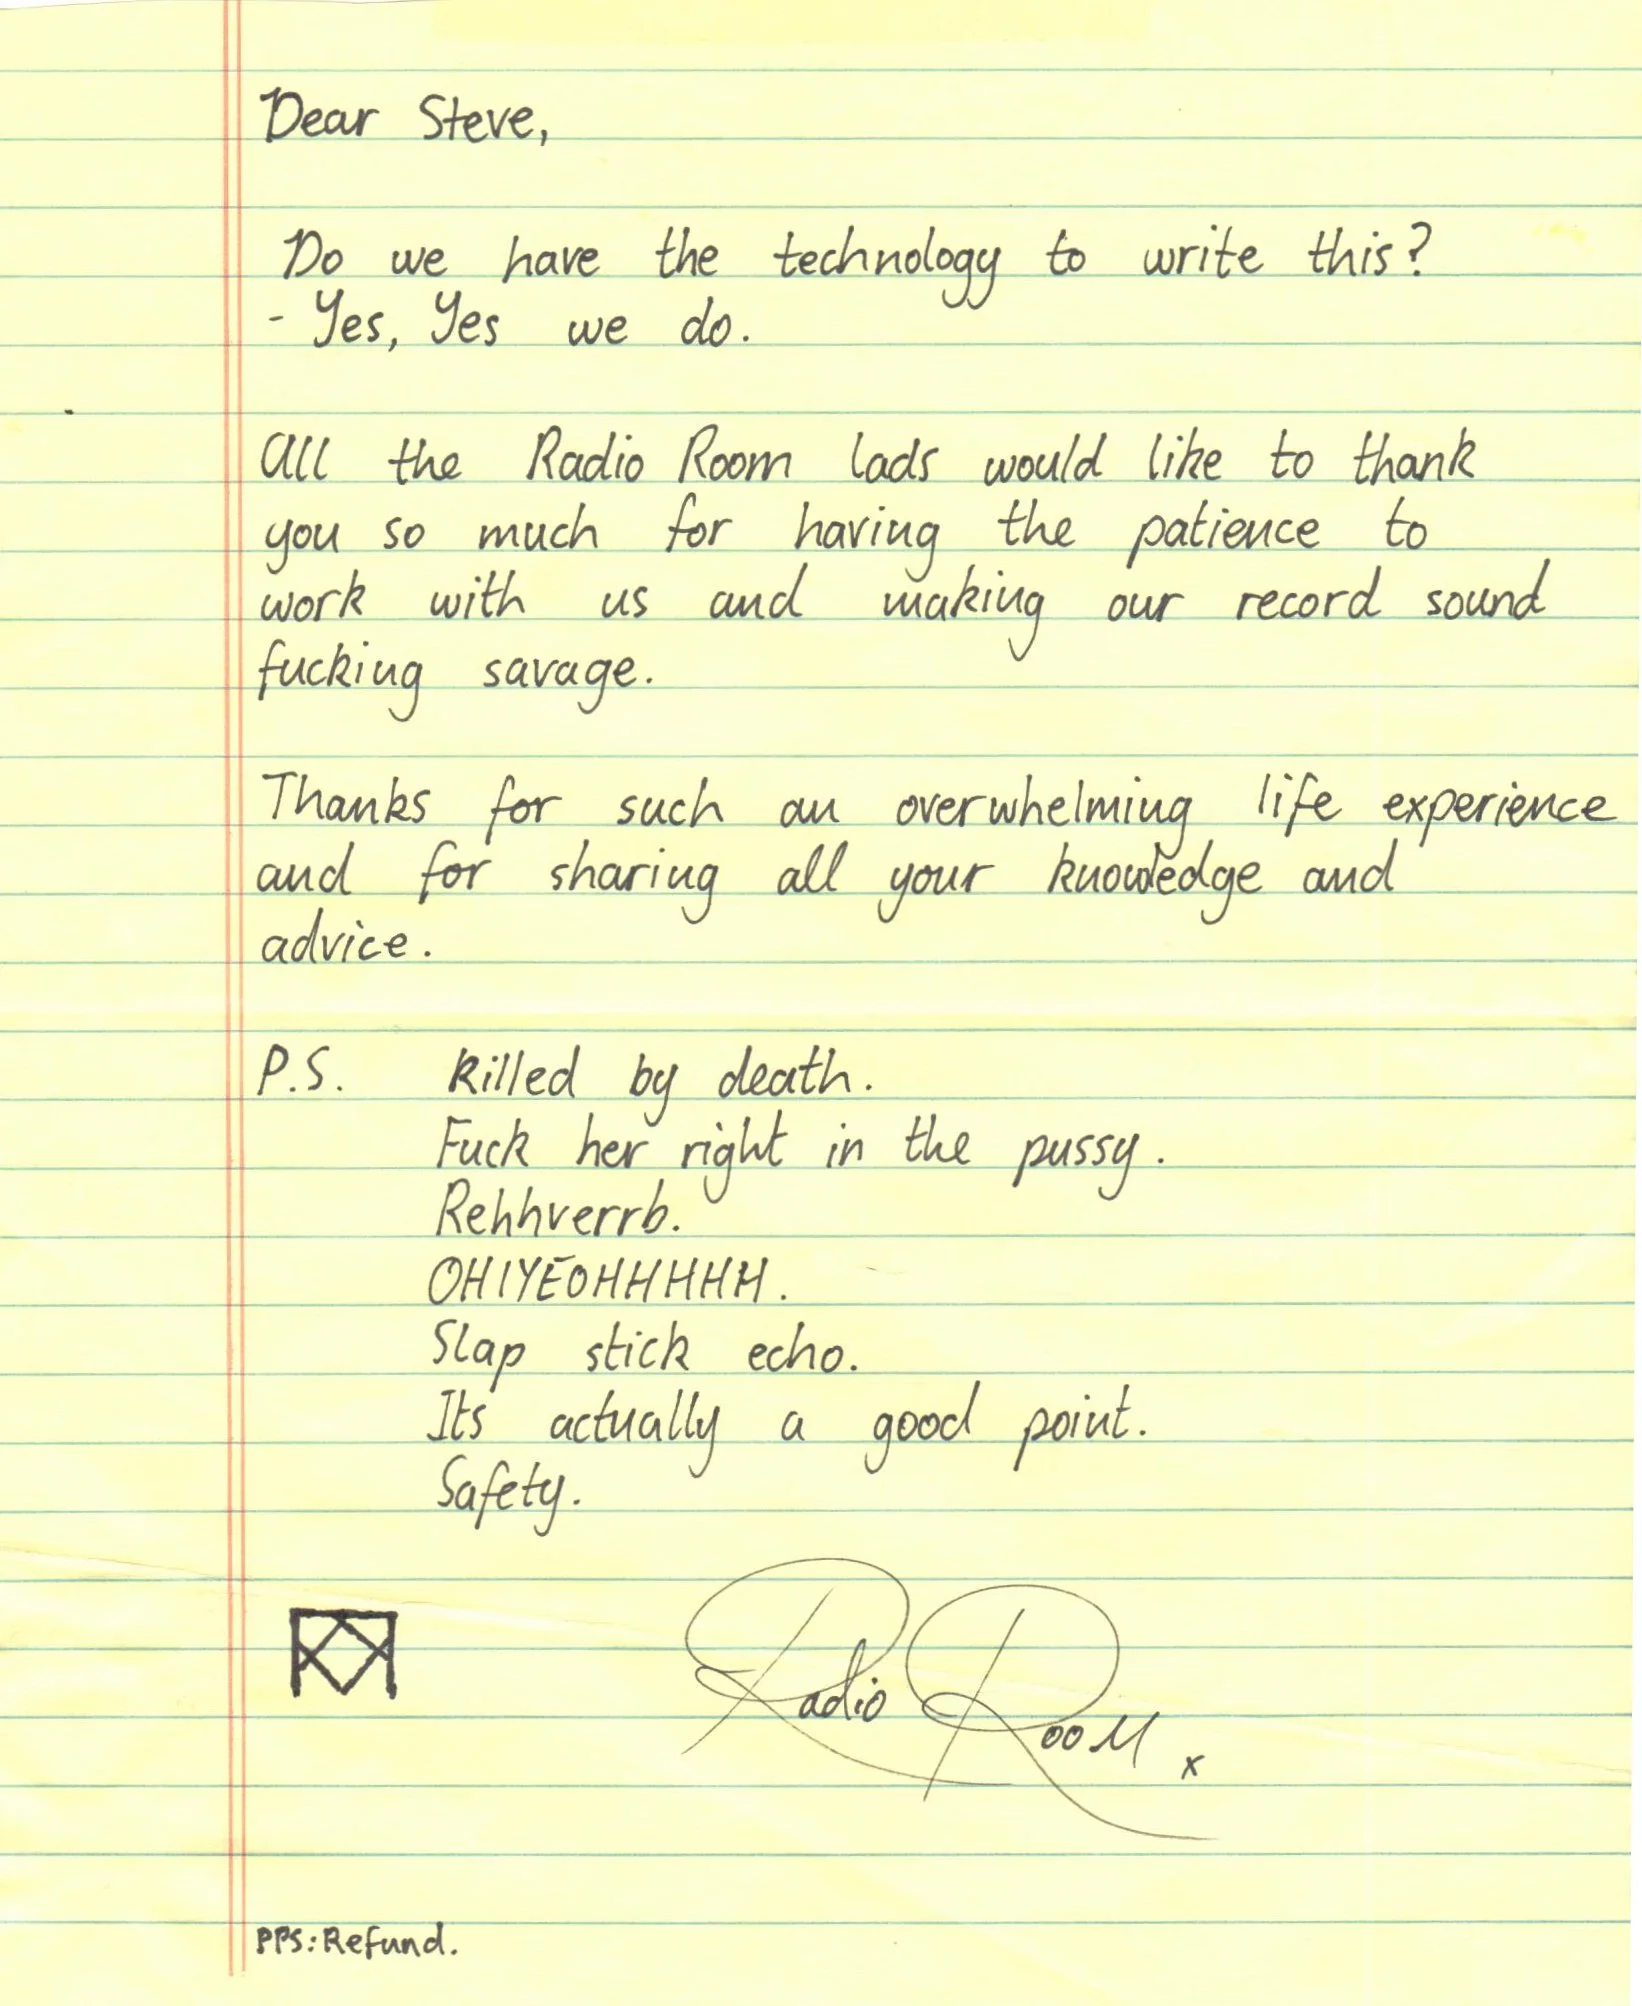 Dear Steve,
Do we have the technology to write this?
- Yes, Yes we do.
All the Radio Room lads would like to thank
you so much for having the patience to
work with us and making our record sound
fucking savage.
Thanks for such an overwhelming life experience
and for sharing all your knowledge and
advice.
P.S. Killed by death.
Fuck her right in the pussy.
Rehhverrb.
OHIYEOHHHHH.
Slap stick echo.
Its actually a good point.
Safety.
Radio RooM x
PPS: Refund.